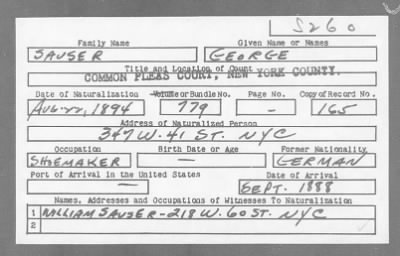 S260
Family Name Given Name or Names
SAUSER GEORGE
Title and Location of Court
COMMON PLEAS COURT, NEW YORK COUNTY.
Date of Naturalization Volume or Bundle No. Page No. Copy of Record No.
AUG-22, 1894 779 — 165
Address of Naturalized Person
347 W. 41 ST. NYC
Occupation Birth Date or Age Former Nationality
SHOEMAKER — GERMAN
Port of Arrival in the United States Date of Arrival
— SEPT. 1888
Names, Addresses and Occupations of Witnesses To Naturalization
1 WILLIAM SAUSER-218 W. 60 ST. NYC
2